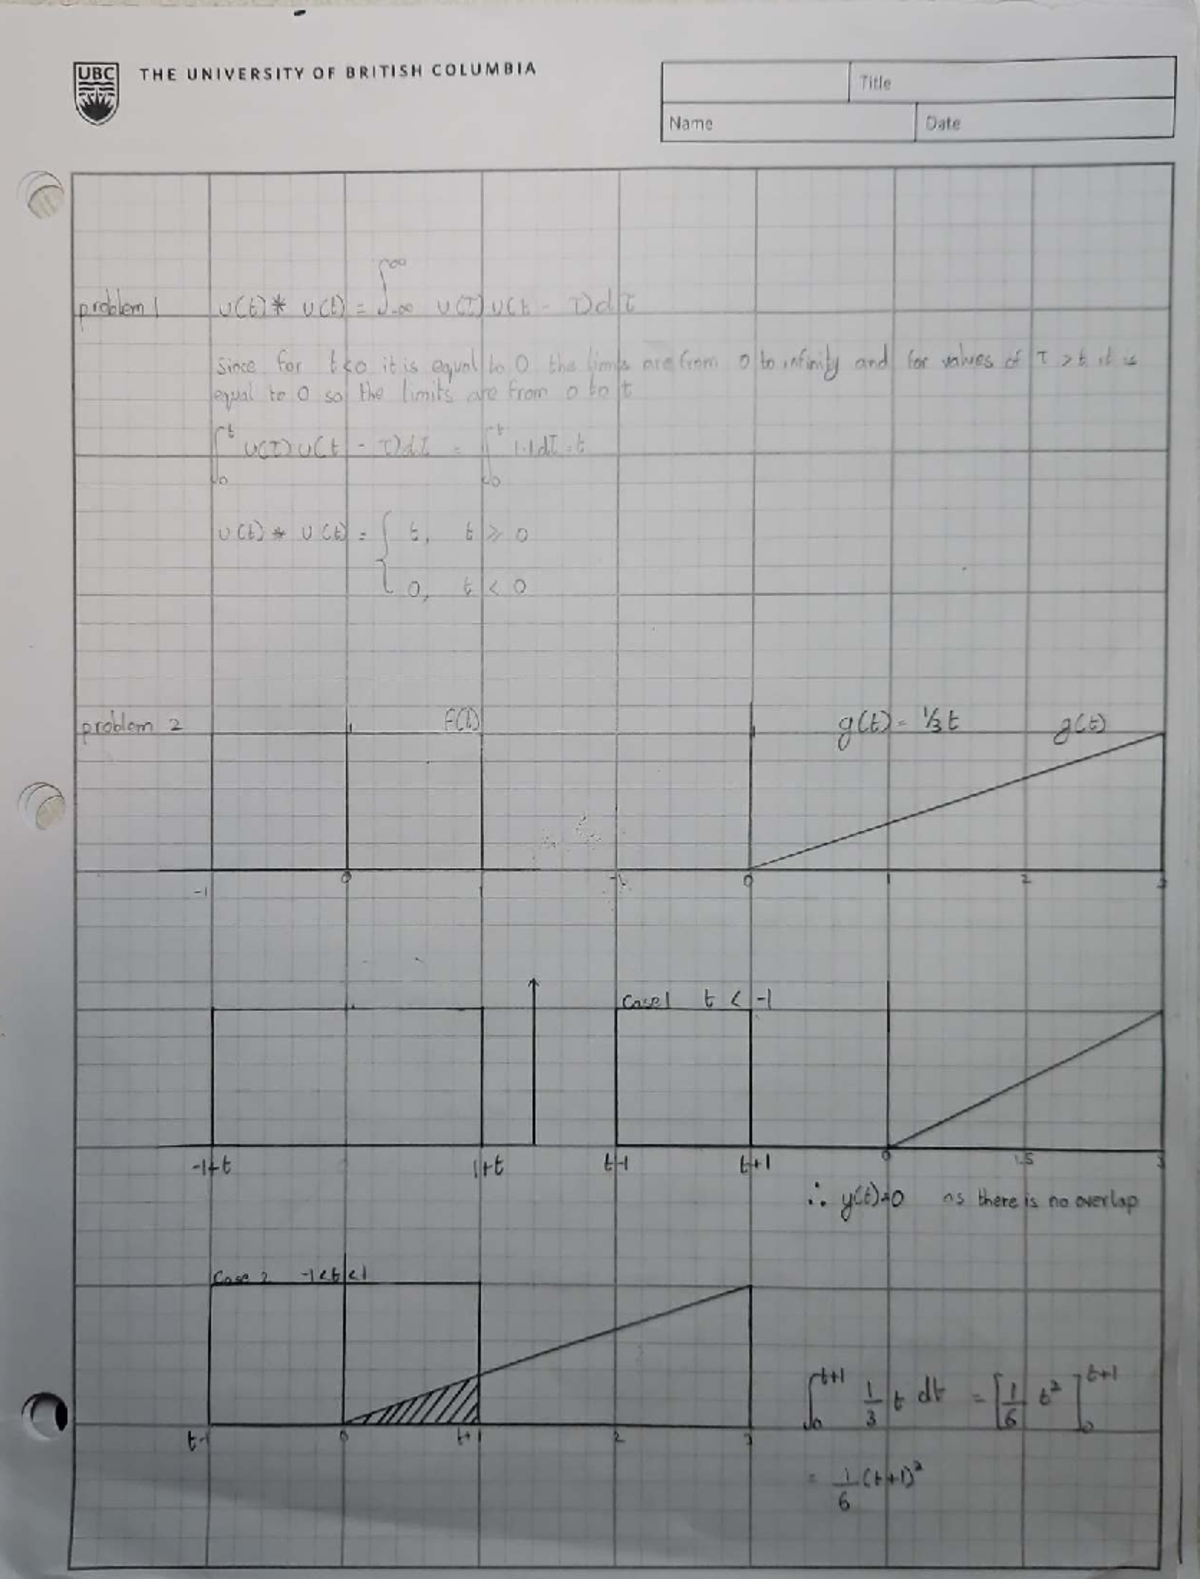 UBC THE UNIVERSITY OF BRITISH COLUMBIA
Title
Name Date
problem 1 u(t) * u(t) = ∫-∞^∞ u(τ) u(t - τ)dτ
Since for t<0 it is equal to 0 the limits are from 0 to infinity and for values of τ >t it is
equal to 0 so the limits are from 0 to t
∫0^t u(τ)u(t - τ)dτ = ∫0^t 1·1dτ = t
u(t) * u(t) = { t, t ≥ 0
0, t < 0
problem 2 f(t) g(t) = ⅓ t g(t)
-1 0 1 -1 0 1 2 3
Case 1 t < -1
-1+t 1+t t-1 t+1 0 1.5 3
∴ y(t)=0 as there is no overlap
Case 2 -1<t<1
∫0^t+1 1/3 t dt = [1/6 t²]0^t+1
t-1 0 t+1 2 3
= 1/6 (t+1)²